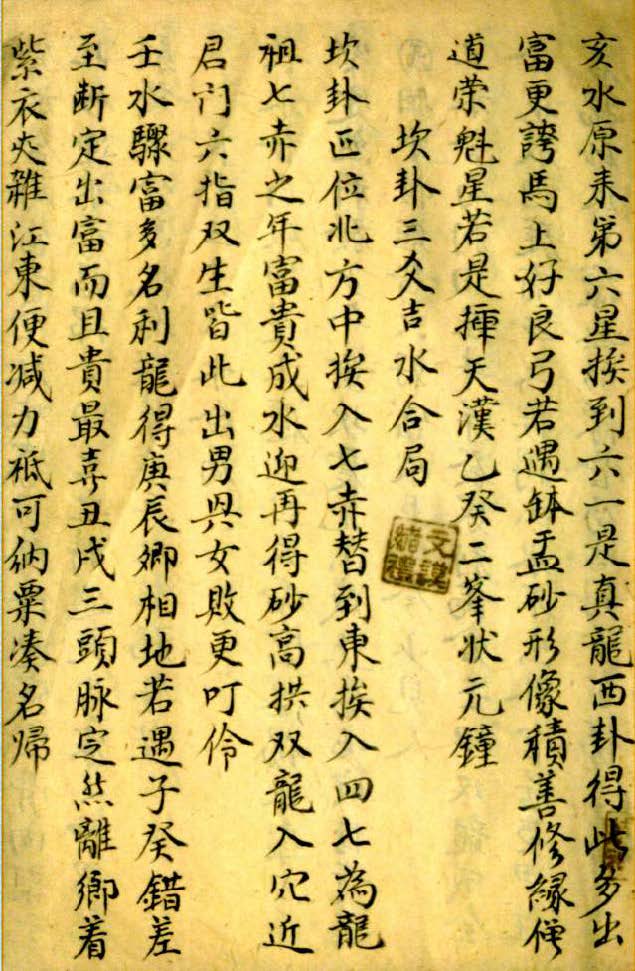 亥水原来第六星挨到六一是真龍西卦得此多出
富更誇馬上好良弓若遇缽盂砂形像積善修緣僧
道荣魁星若是揮天漢乙癸二峯状元鐘
坎卦三爻吉水合局
坎卦正位北方中挨入七赤替到東挨入四七為龍
祖七赤之年富貴成水迎再得砂高拱双龍入穴近
君门六指双生皆此出男與女敗更叮伶
壬水驟富多名利龍得庚辰鄉相地若遇子癸錯差
至断定出富而且貴最喜丑戌三頭脉定然離鄉着
紫衣夾雜江東便减力祗可納粟凑名歸